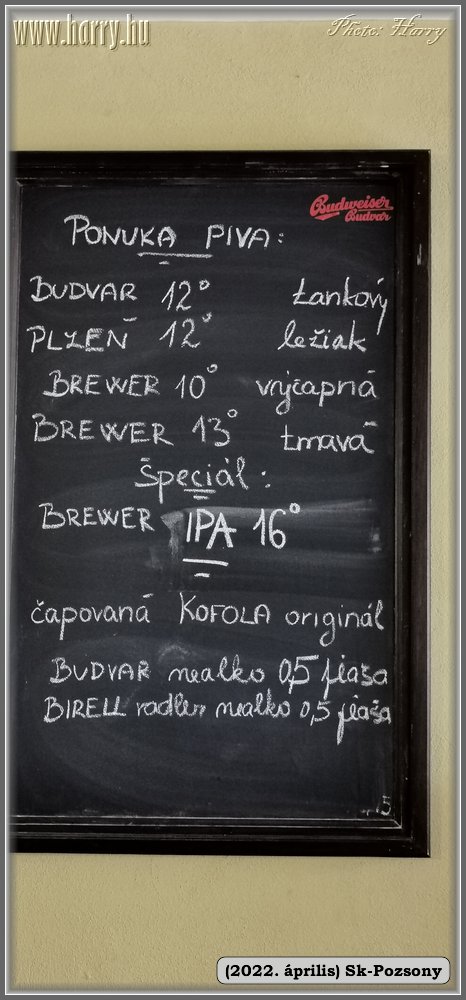 www.harry.hu
Photo: Harry
Budweiser
Budvar
PONUKA PIVA:
BUDVAR 12° tankový
PLZEŇ 12° ležiak
BREWER 10° výčapná
BREWER 13° tmavá
Špeciál:
BREWER IPA 16°
čapovaná KOFOLA originál
BUDVAR nealko 0,5 fľaša
BIRELL radler nealko 0,5 fľaša
(2022. április) Sk-Pozsony